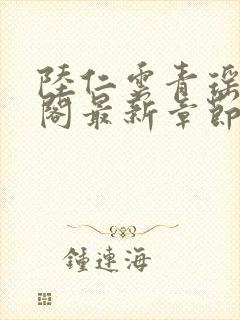 陸仁雲青瑶
閣最新章節
鍾連海